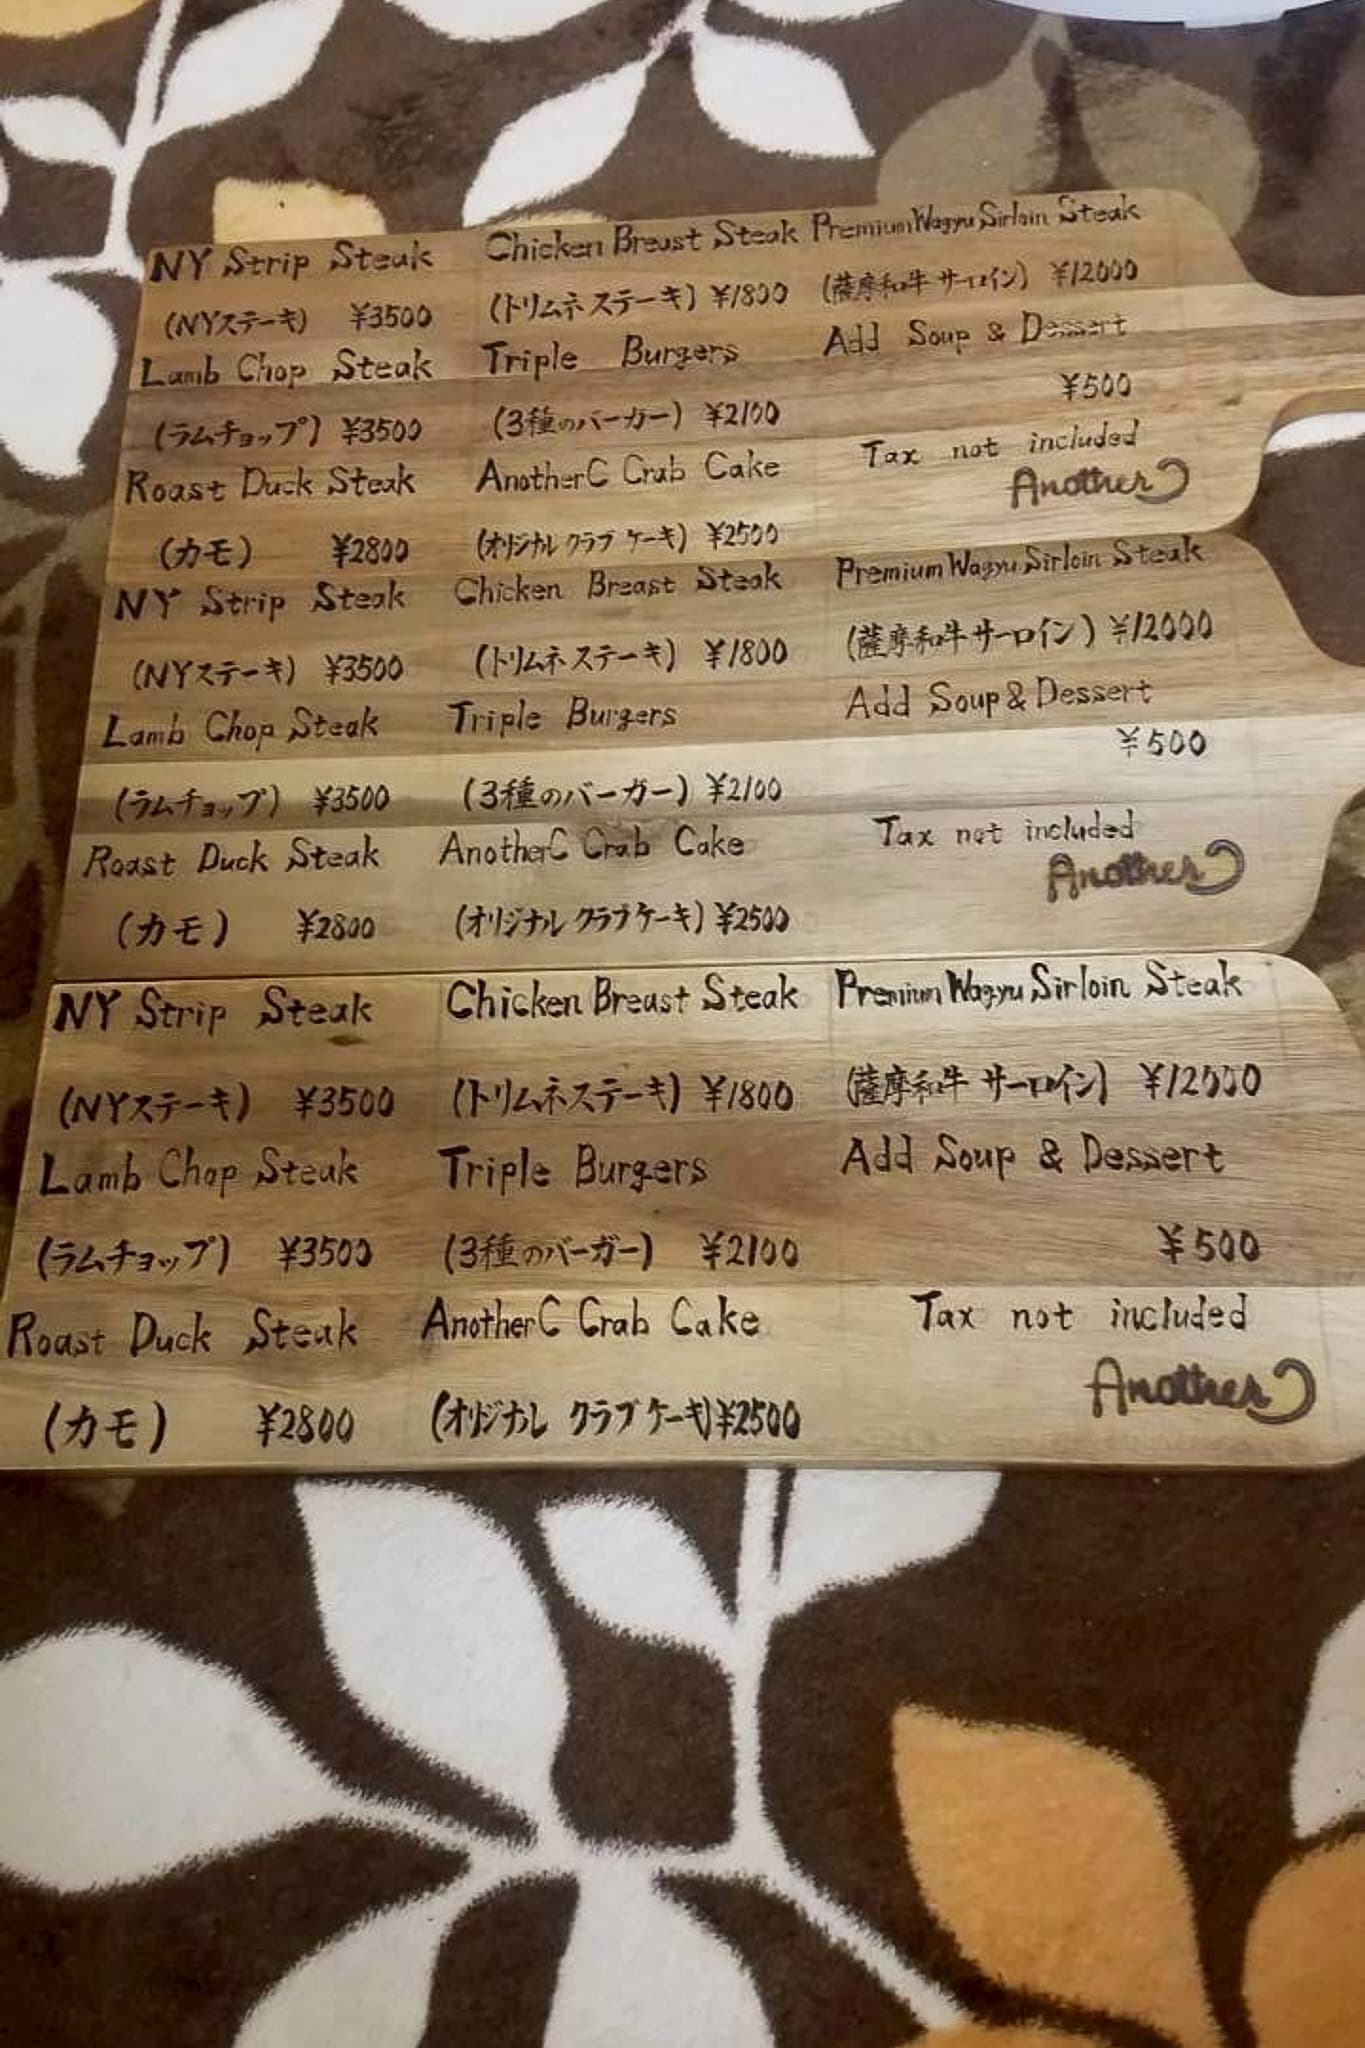 NY Strip Steak
(NYステーキ) ¥3500
Lamb Chop Steak
(ラムチョップ) ¥3500
Roast Duck Steak
(カモ) ¥2800
Chicken Breast Steak
(トリムネステーキ) ¥1800
Triple Burgers
(3種のバーガー) ¥2100
AnotherC Crab Cake
(オリジナル クラブ ケーキ) ¥2500
Premium Wagyu Sirloin Steak
(薩摩和牛 サーロイン) ¥12000
Add Soup & Dessert
¥500
Tax not included
AnotherC
NY Strip Steak
(NYステーキ) ¥3500
Lamb Chop Steak
(ラムチョップ) ¥3500
Roast Duck Steak
(カモ) ¥2800
Chicken Breast Steak
(トリムネステーキ) ¥1800
Triple Burgers
(3種のバーガー) ¥2100
AnotherC Crab Cake
(オリジナル クラブケーキ) ¥2500
Premium Wagyu Sirloin Steak
(薩摩和牛サーロイン) ¥12000
Add Soup & Dessert
¥500
Tax not included
AnotherC
NY Strip Steak
(NYステーキ) ¥3500
Lamb Chop Steak
(ラムチョップ) ¥3500
Roast Duck Steak
(カモ) ¥2800
Chicken Breast Steak
(トリムネステーキ) ¥1800
Triple Burgers
(3種のバーガー) ¥2100
AnotherC Crab Cake
(オリジナル クラブケーキ) ¥2500
Premium Wagyu Sirloin Steak
(薩摩和牛 サーロイン) ¥12000
Add Soup & Dessert
¥500
Tax not included
AnotherC